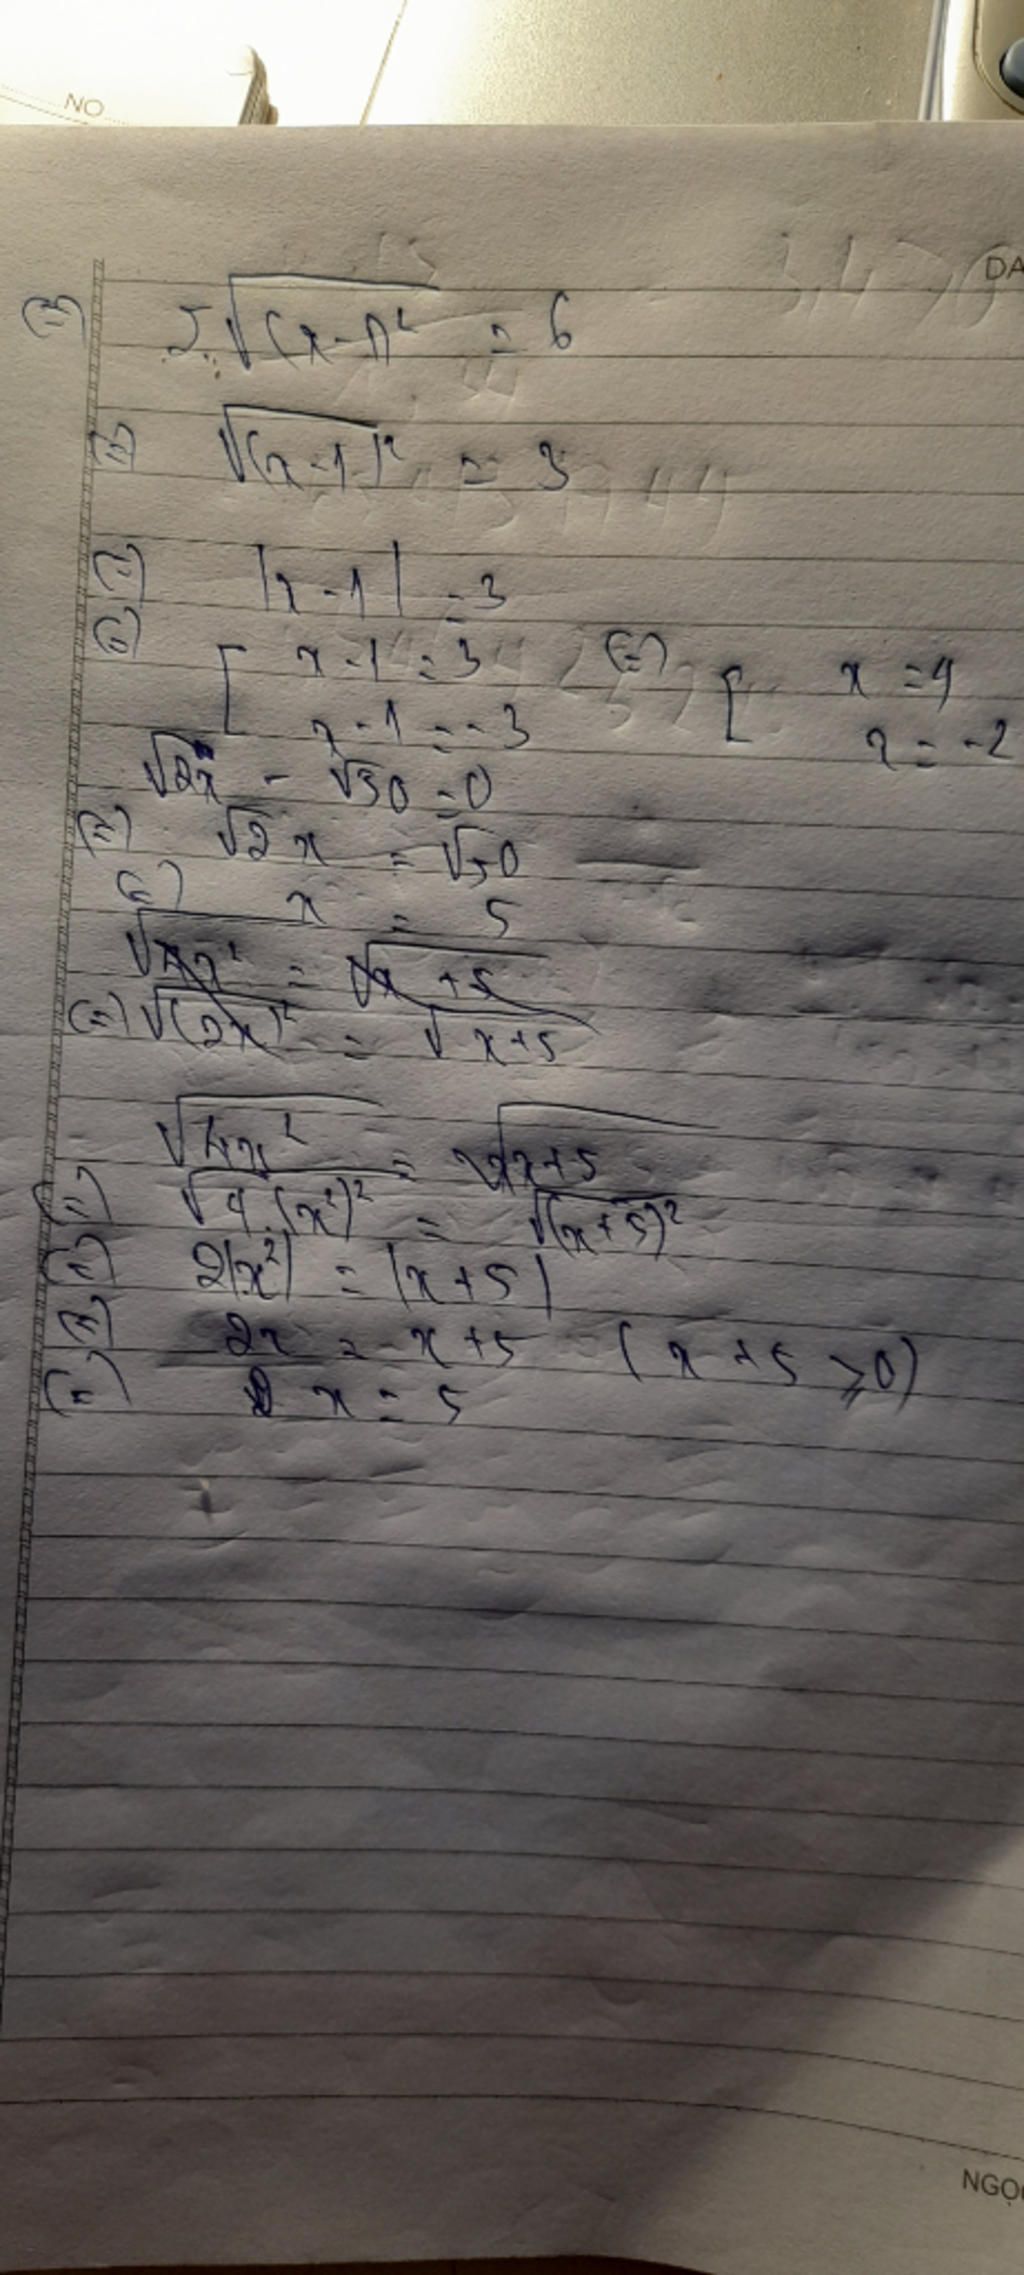 NO
DA
(=) 2.√(x-1)² = 6
(=) √(x-1)² = 3
(=) |x-1| = 3
(=) [ x-1 = 3 (=) [ x = 4
x-1 = -3 x = -2
√2x - √50 = 0
(=) √2 x = √50
(=) x = 5
√4x² = √x+5
(=) √(2x)² = √x+5
√4x² = √x+5
(=) √4.(x²)² = √(x+5)²
(=) 2|x²| = |x+5|
(=) 2x = x+5 (x+5 ⩾0)
(=) x = 5
NGỌ